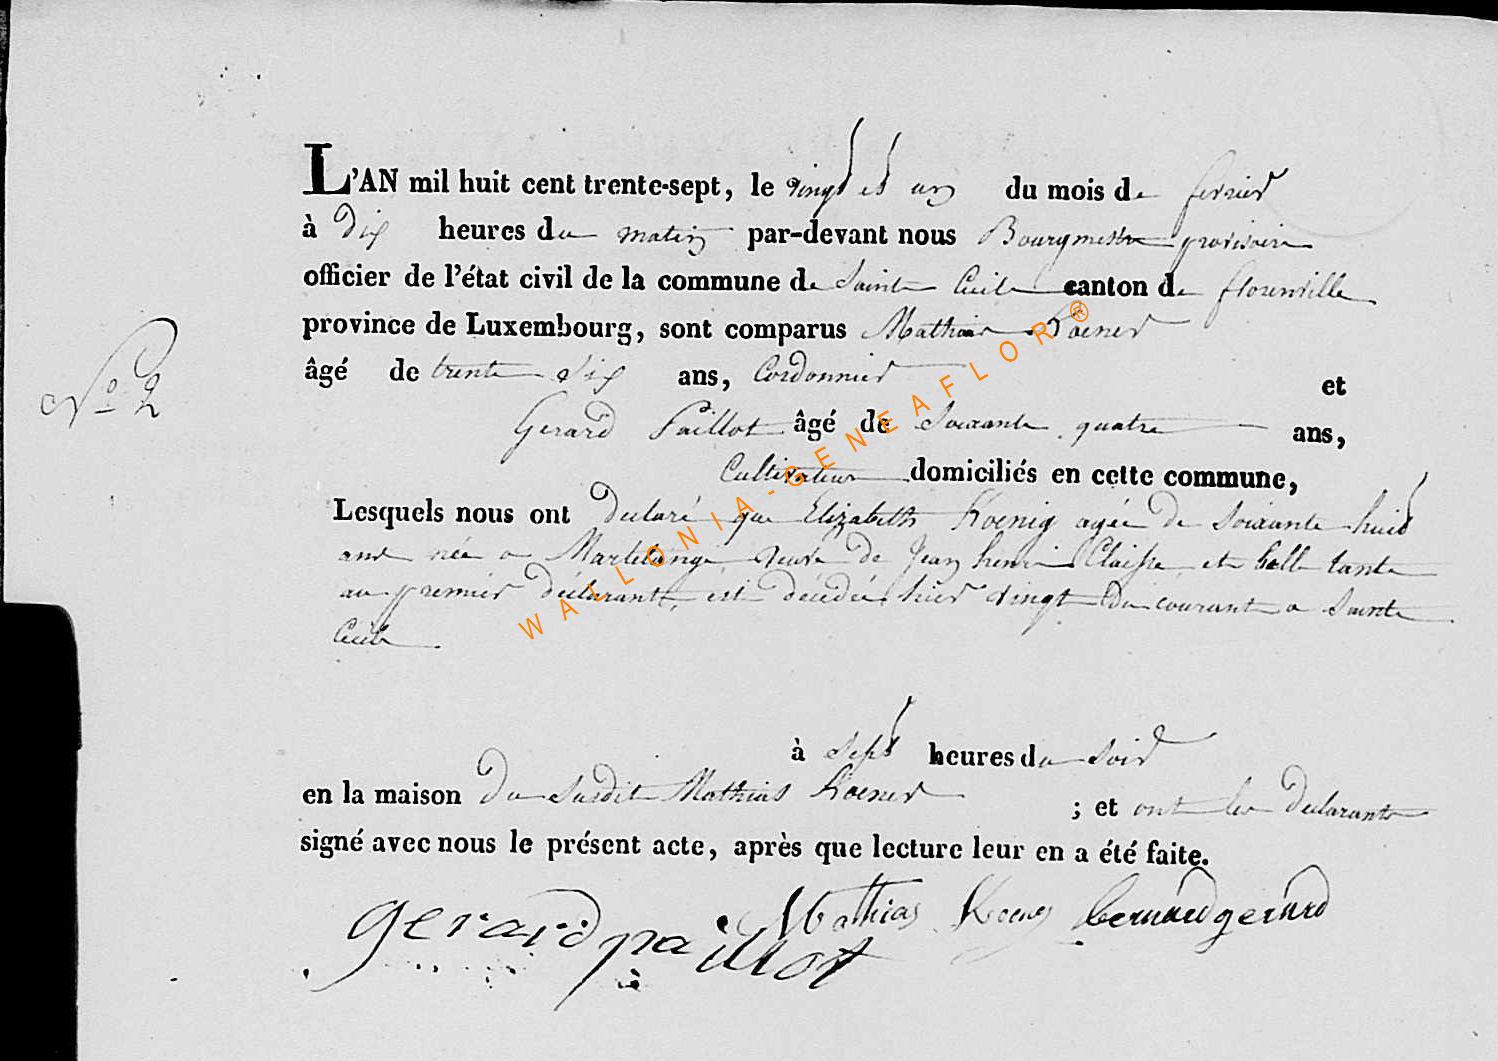 L'AN mil huit cent trente-sept, le vingt et un du mois de fevrier
à dix heures du matin par-devant nous Bourgmestre provisoire
officier de l'état civil de la commune de Sainte Cecile canton de florenville
province de Luxembourg, sont comparus Mathias Koener
âgé de trente dix ans, Cordonnier et
No 2
Gerard Paillot âgé de Soixante quatre ans,
Cultivateur domiciliés en cette commune,
Lesquels nous ont declaré que Elizabeth Koenig agée de Soixante huit
ans née a Martelange, veuve de Jean henri Claisse, et belle tante
au premier déclarant, est décédée hier vingt du courant a Sainte
Cecile
à sept heures du soir
en la maison du susdit Mathias Koener ; et ont les declarants
signé avec nous le présent acte, après que lecture leur en a été faite.
Mathias Koener Bernard gerard
gerard paillot
WALLONIA-GENEAFLOR®